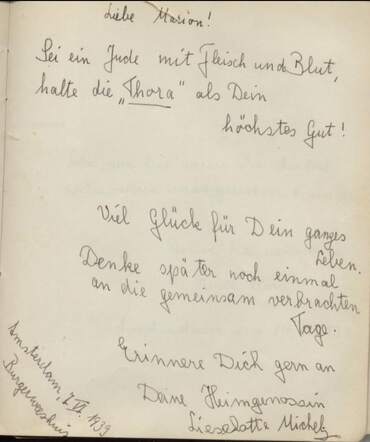 Liebe Marion!
Sei ein Jude mit Fleisch und Blut,
halte die „Thora" als Dein
höchstes Gut!
Viel Glück für Dein ganzes
Leben.
Denke später noch einmal
an die gemeinsam verbrachten
Tage.
Erinnere Dich gern an
Deine Heimgenossin
Lieselotte Michel
Amsterdam, 1939
Burgerweeshuis